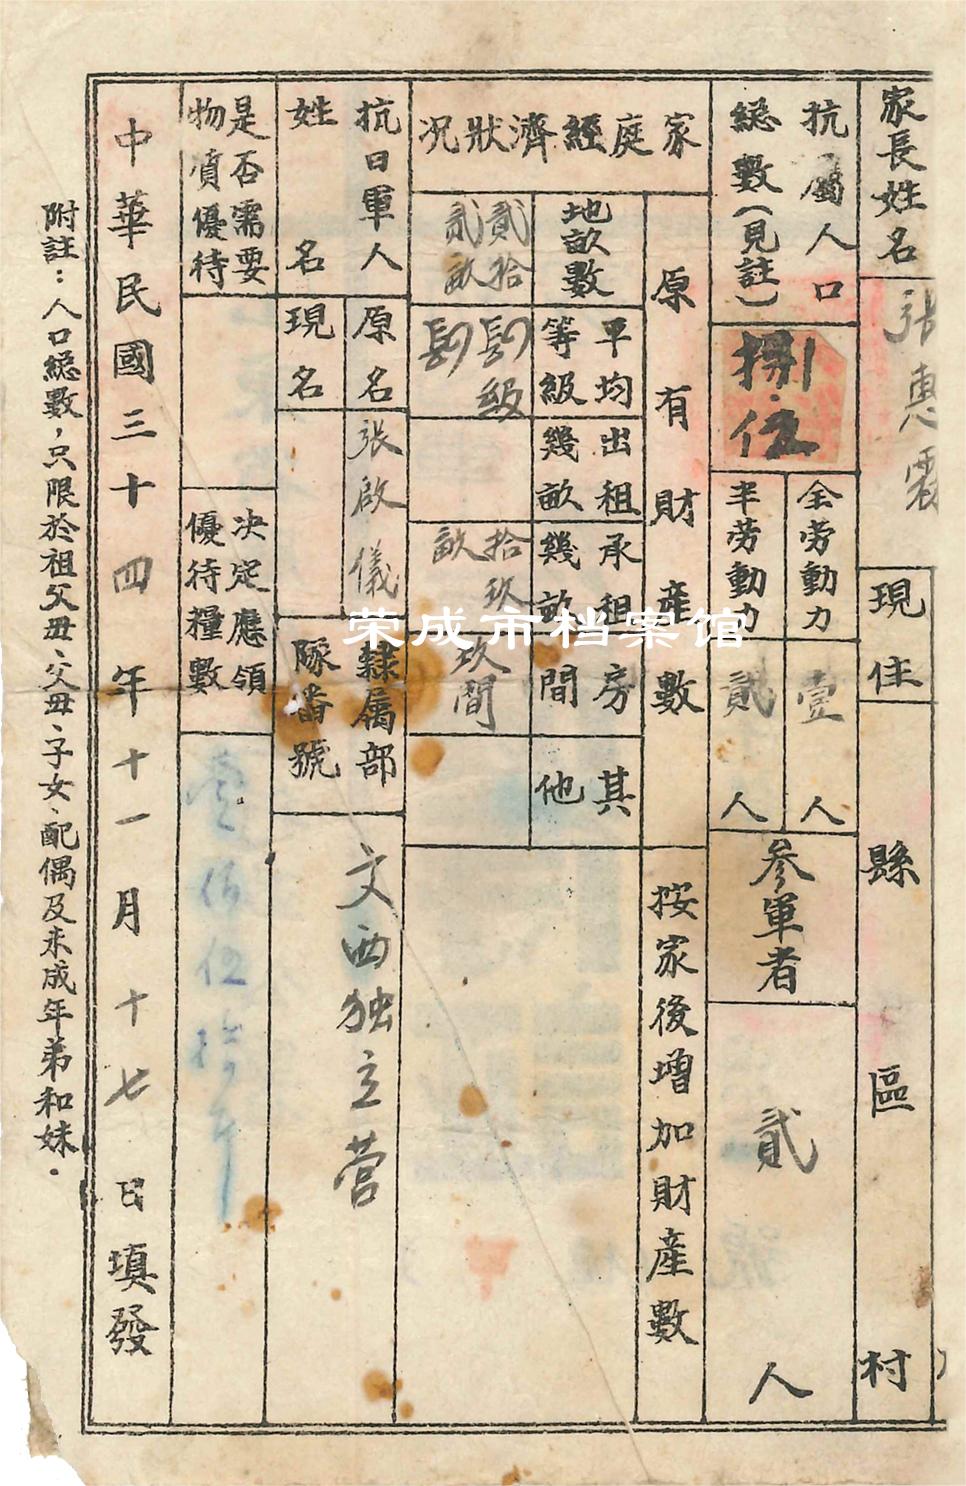 家長姓名
張惠霖
現住
縣
區
村
抗屬人口
總數(見註)
捌位
全勞動力
壹
人
半勞動力
貳
人
參軍者
貳
人
家庭經濟狀況
原有財產數
地畝數
貳拾
貳畝
平均
等級
級
出租
幾畝
承租
幾畝
拾玖
畝
房
間
玖間
其
他
按家後增加財產數
抗日軍人
姓名
原名
張啟儀
現名
隸屬部
隊番號
文西独立营
是否需要
物質優待
決定應領
優待糧數
壹佰伍拾斤
中華民國三十四年十一月十七日填發
附註:人口總數,只限於祖父毋、父毋、子女、配偶及未成年弟和妹.
荣成市档案馆